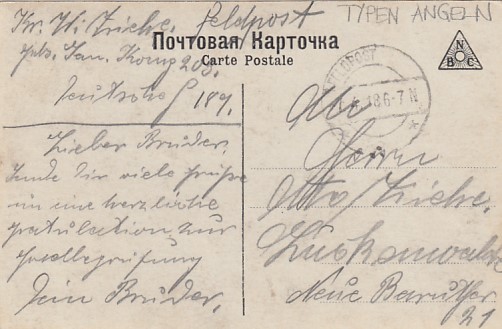 TYPEN ANGELN
Kr. W. Ziehe. Feldpost
San. Komp 203.
Deutsche F 189.
Почтовая Карточка
Carte Postale
N
B C
FELDPOST
18 6-7 N
An
Herrn
Otto Ziehe.
Luckenwalde
Neue Baruther
21
Lieber Bruder.
Sende Dir viele Grüße
und eine herzliche
gratulation zur
Dein Bruder.